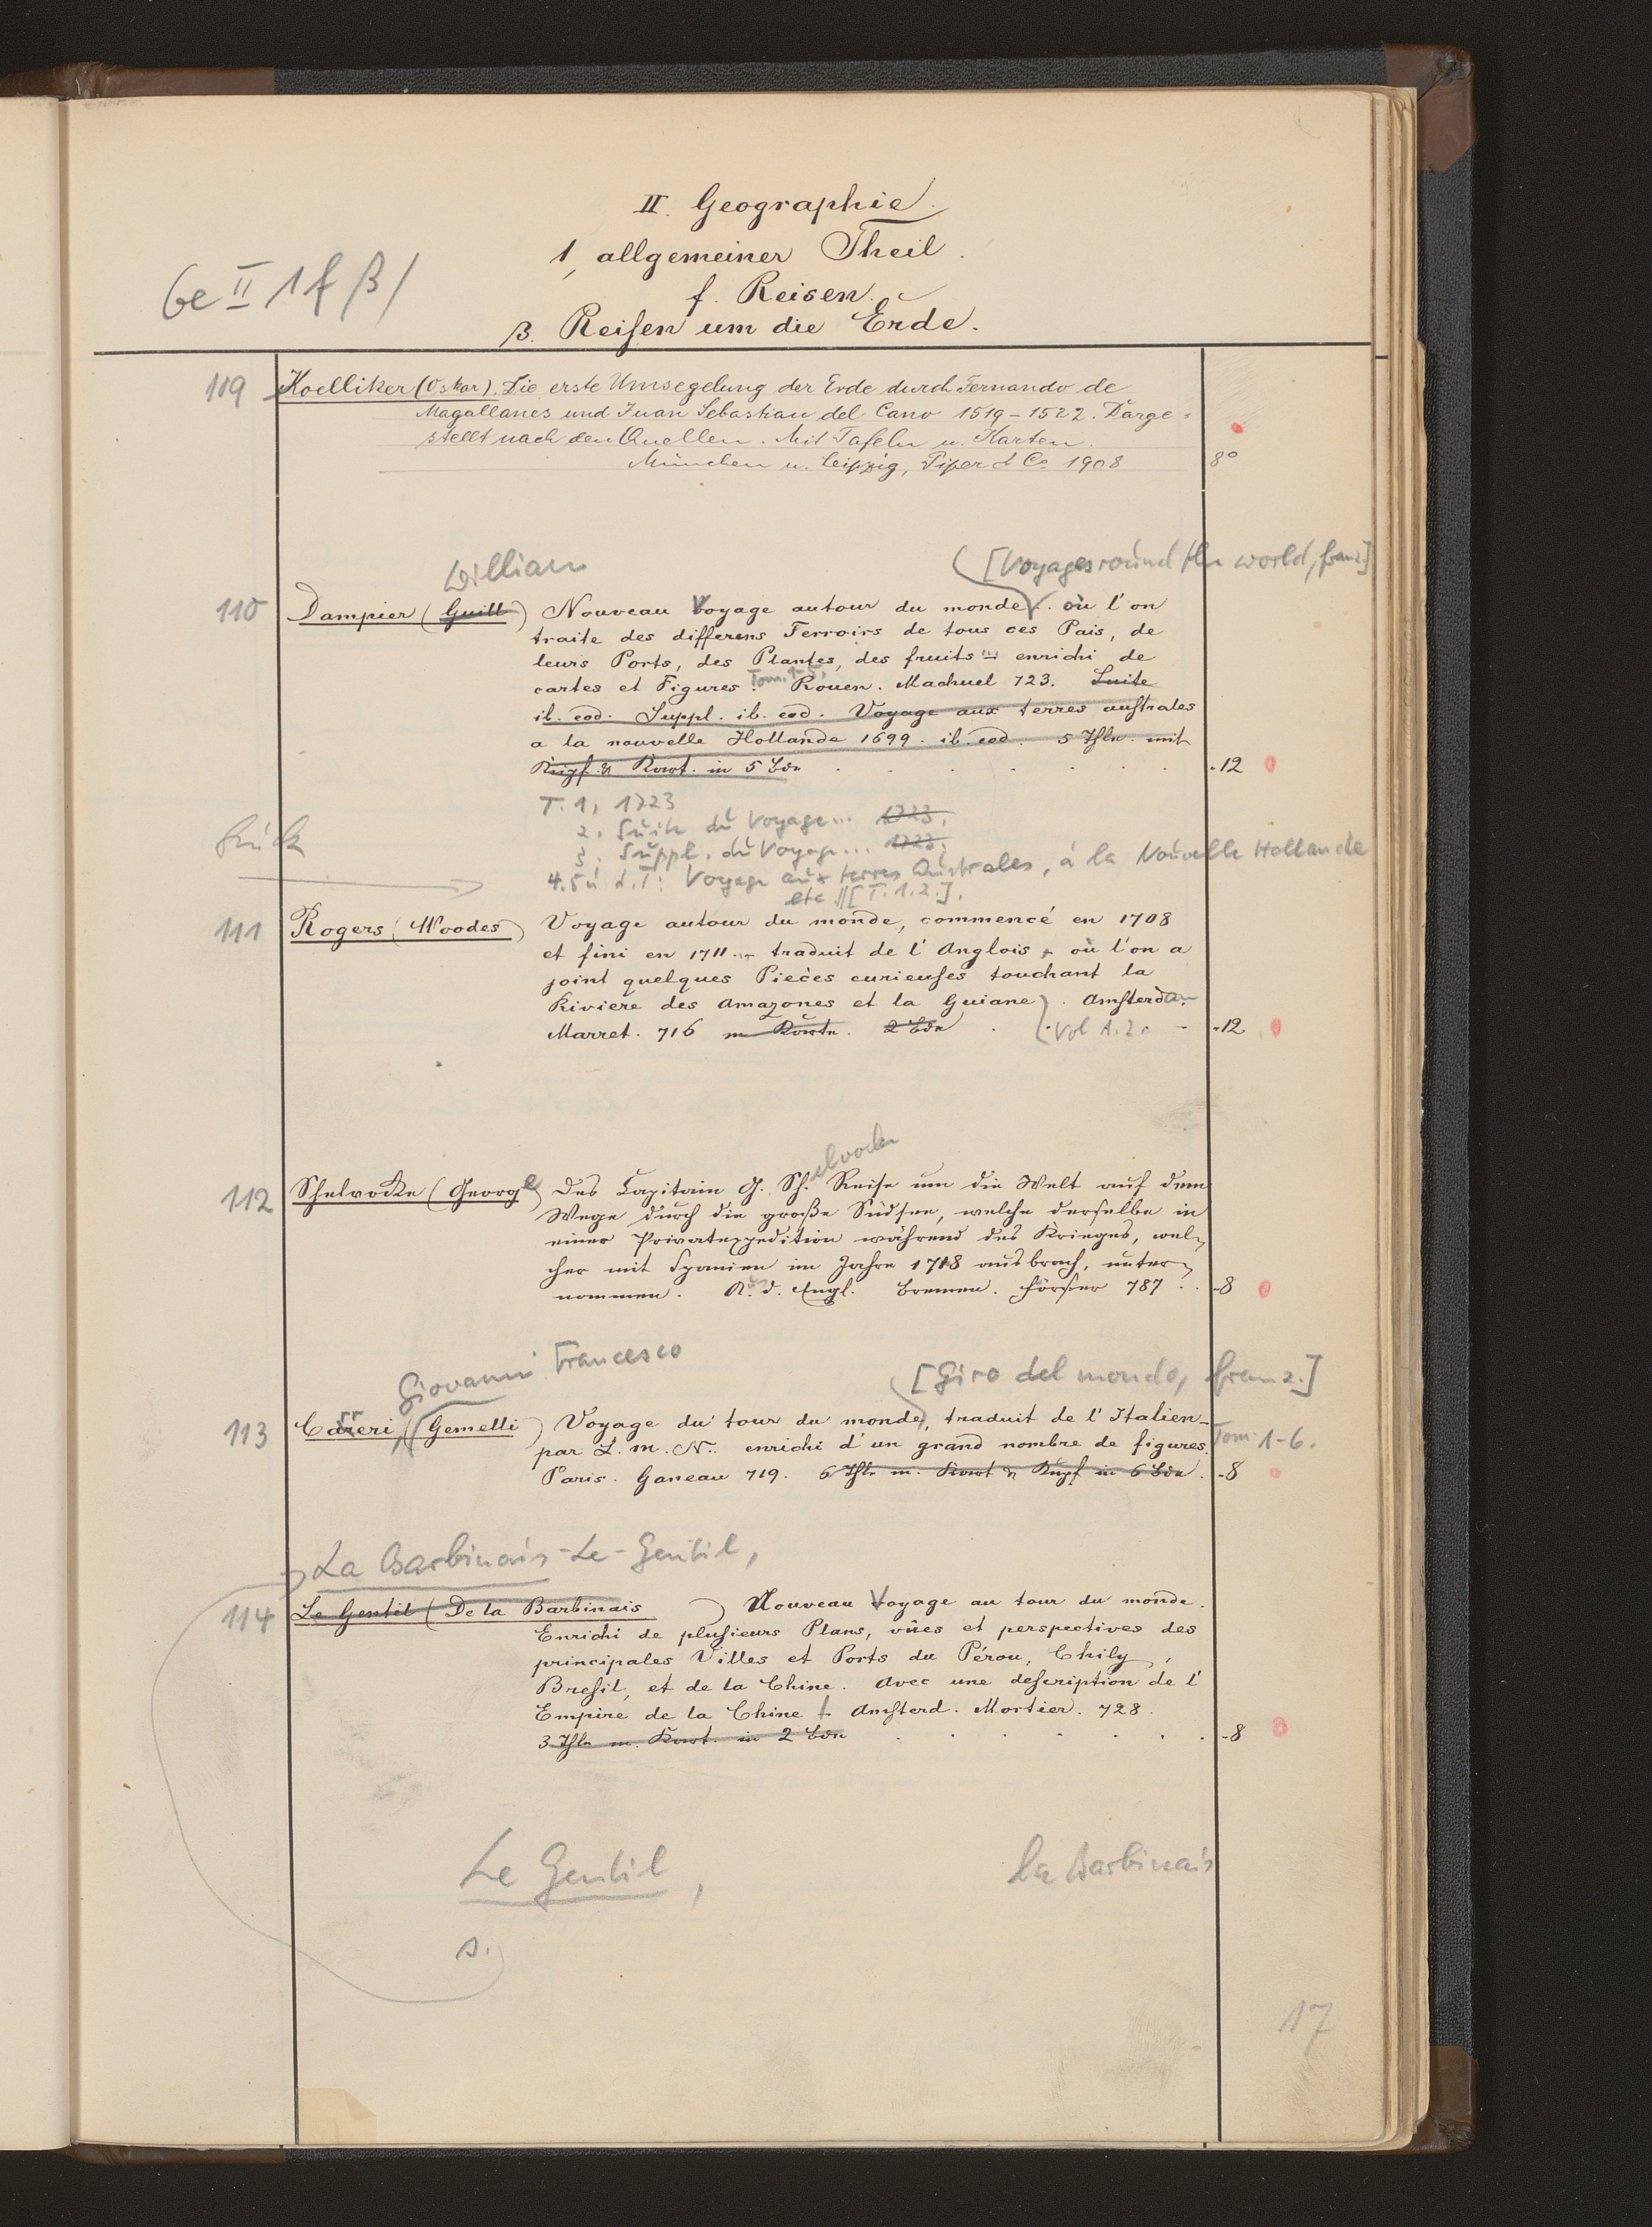 II. Geographie.
1, allgemeiner Theil.
Ge II 1 f β/
f. Reisen.
β. Reisen um die Erde.
119 Koelliker (Oskar). Die erste Umsegelung der Erde durch Fernando de
Magallanes und Juan Sebastian del Cano 1519-1522. Darge=
stellt nach den Quellen. Mit Tafeln u. Karten.
München u. Leipzig, Piper & Co 1908 8°
William [Voyages round the world, franz.]
110 Dampier (Guill) Nouveau Voyage autour du monde. où l'on
traite des differens Terroirs de tous ces Pais, de
leurs Ports, des Plantes, des fruits ... enrichi de
Tom. 1-5.
cartes et Figures. Rouen. Machuel 723. Suite
ib. eod. Suppl. ib. eod. Voyage aux terres australes
a la nouvelle Hollande 1699. ib. eod. 5 Thle. mit
Kupf. & Kart. in 5 Bdn . . . . . -12
T. 1, 1723
2. Suite du Voyage... 1723.
3. Suppl. du Voyage... 1723.
4.5 u. d. T: Voyage aux terres Australes, à la Nouvelle Hollande
etc [T. 1.2.].
111 Rogers (Woodes) Voyage autour du monde, commencé en 1708
et fini en 1711 ... traduit de l'Anglois où l'on a
joint quelques Pieçes curieuses touchant la
Riviere des Amazones et la Guiane). Amsterdam
Marret. 716 m Kartn. 2 Bde . Vol 1.2. - -12
elvocke
112 Shelvocke (George) Des Capitain G. Sh. Reise um die Welt auf dem
Wege durch die große Südsee, welche derselbe in
einer Privatexpedition während des Krieges, wel-
cher mit Spanien im Jahre 1718 ausbrach, unter-
nommen. A. d. Engl. Bremen. Förster 787 . . -8
Giovanni Francesco [Giro del mondo, franz.]
113 Carreri, (Gemelli) Voyage du tour du monde, traduit de l'Italien
par L. M. N.. enrichi d'un grand nombre de figures. Tom. 1-6.
Paris. Ganeau 719. 6 Thle m. Kart & Kupf in 6 Bdn. -8
La Barbinais-Le-Gentil,
114 Le Gentil (De la Barbinais) Nouveau Voyage au tour du monde.
Enrichi de plusieurs Plans, vûes et perspectives des
principales Villes et Ports du Pérou, Chily,
Bresil, et de la Chine. Avec une description de l'
Empire de la Chine. Amsterd. Mortier. 728.
3 Thle m. Kart. in 2 Bdn . . . . . . -8
Le Gentil, la Barbinais
s.
17